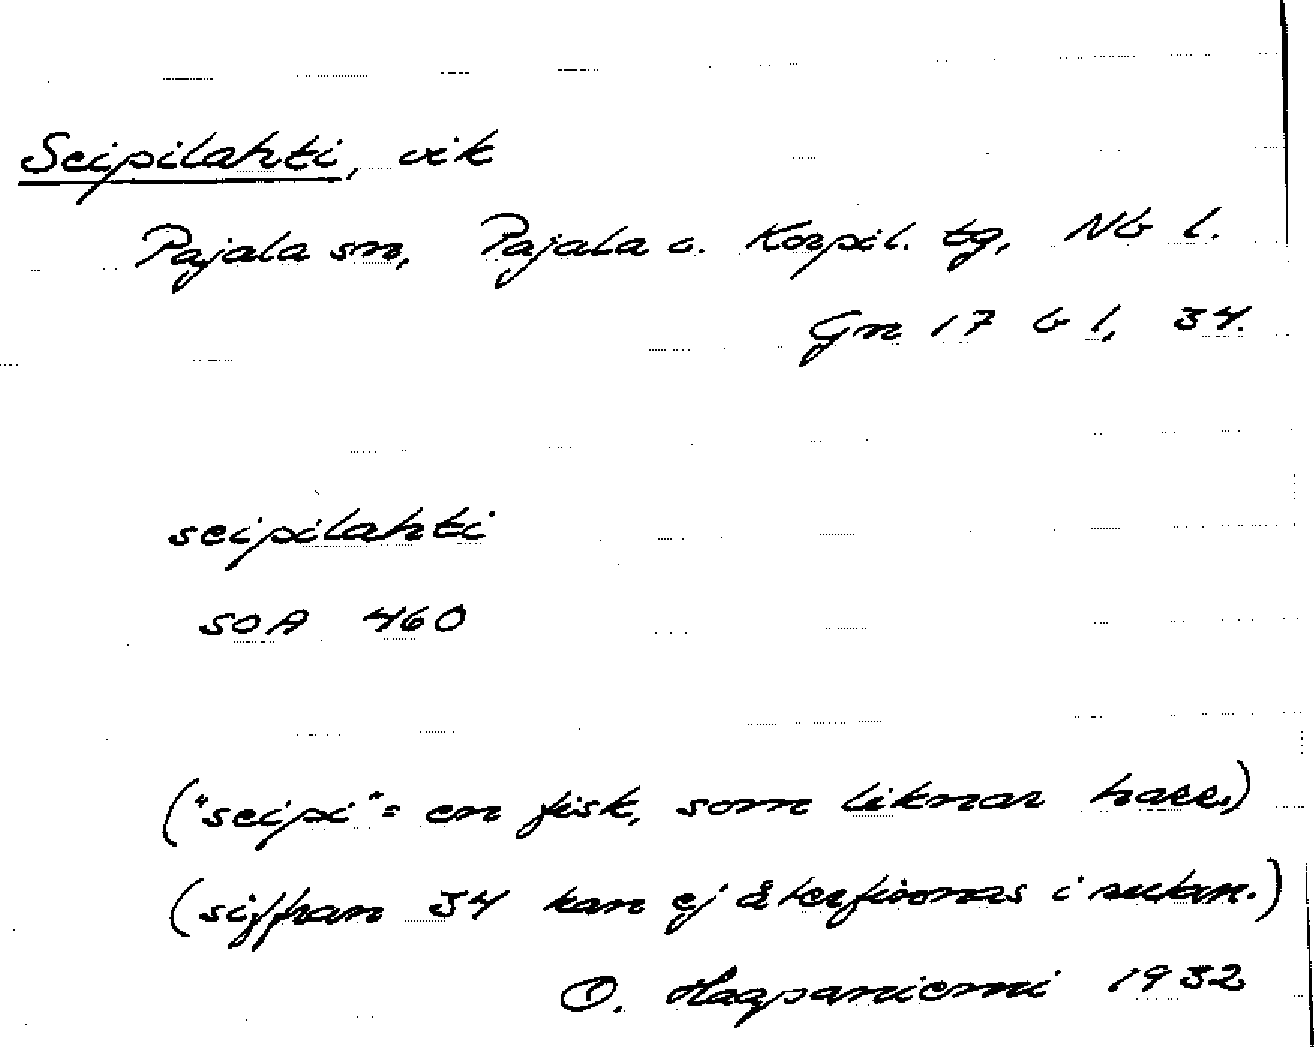 Seipilahti, vik
Pajala sn, Pajala o. Korpil. tg, Nb l.
Gn 17 b 1, 34.
seipilahti
SOA 460
("seipi" = en fisk, som liknar harr.)
(siffran 34 kan ej återfinnas i rutan.)
O. Haapaniemi 1932